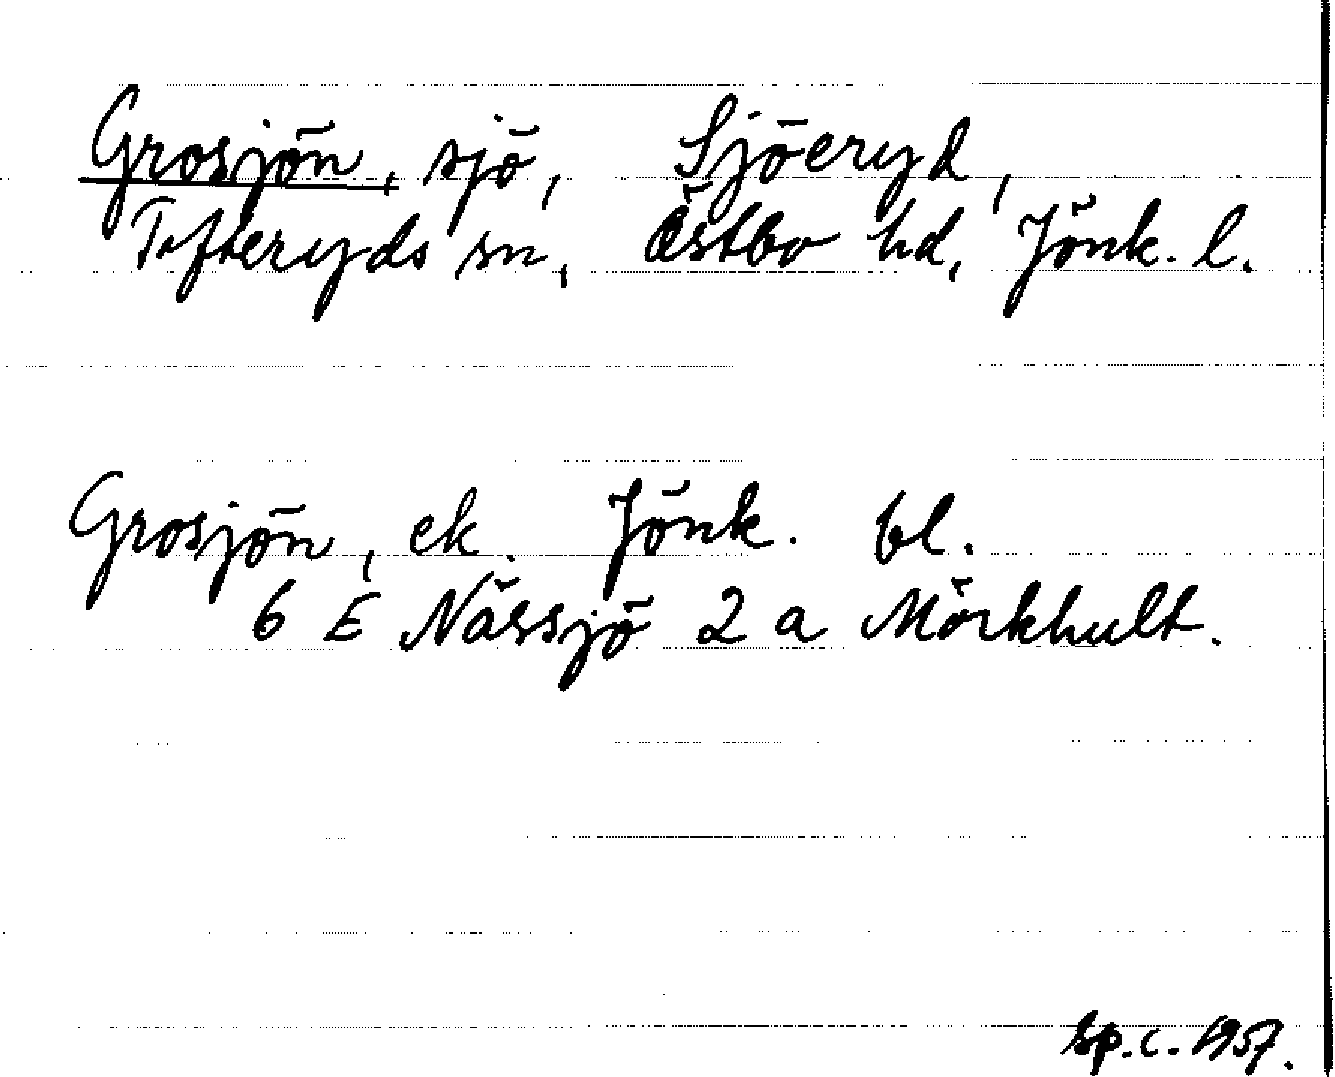 Grosjön, sjö, Sjöeryd,
Tofteryds sn, Östbo hd, Jönk. l.
Grosjön, ek. Jönk. bl.
6 E Nässjö 2 a Mörkhult.
Sp.c. 1957.